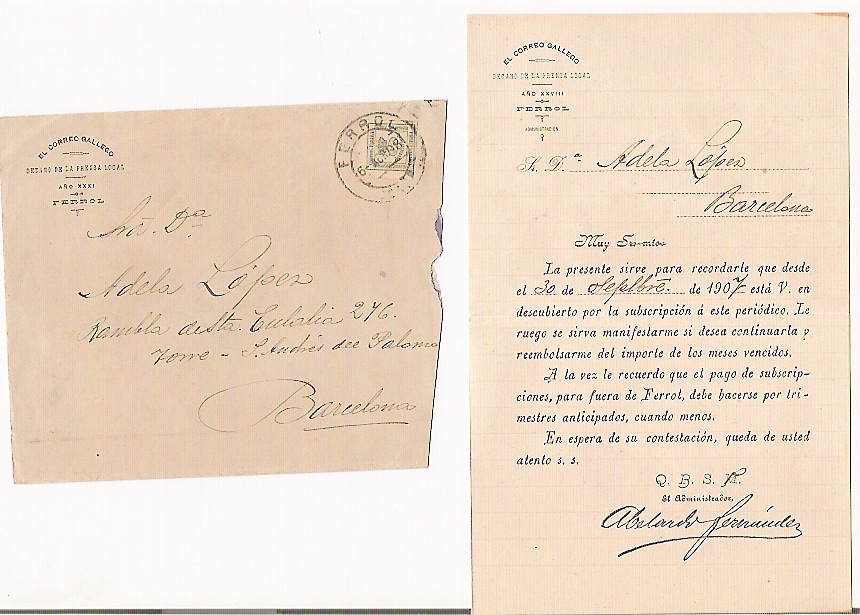 EL CORREO GALLEGO
DECANO DE LA PRENSA LOCAL
AÑO XXXI
FERROL
FERROL
Sra. Da
Adela López
Rambla de Sta. Eulalia 276.
Torre - S. Andrés de Palomar
Barcelona
EL CORREO GALLEGO
DECANO DE LA PRENSA LOCAL
AÑO XXVIII
FERROL
ADMINISTRACIÓN
D.a Adela López
Barcelona
Muy Sr. mío:
La presente sirve para recordarle que desde
el 30 de Septbre. de 1907 está V. en
descubierto por la subscripción á este periódico. Le
ruego se sirva manifestarme si desea continuarla y
reembolsarme del importe de los meses vencidos.
A la vez le recuerdo que el pago de subscrip-
ciones, para fuera de Ferrol, debe hacerse por tri-
mestres anticipados, cuando menos.
En espera de su contestación, queda de usted
atento s. s.
Q. B. S. M.
El Administrador,
Abelardo Fernández